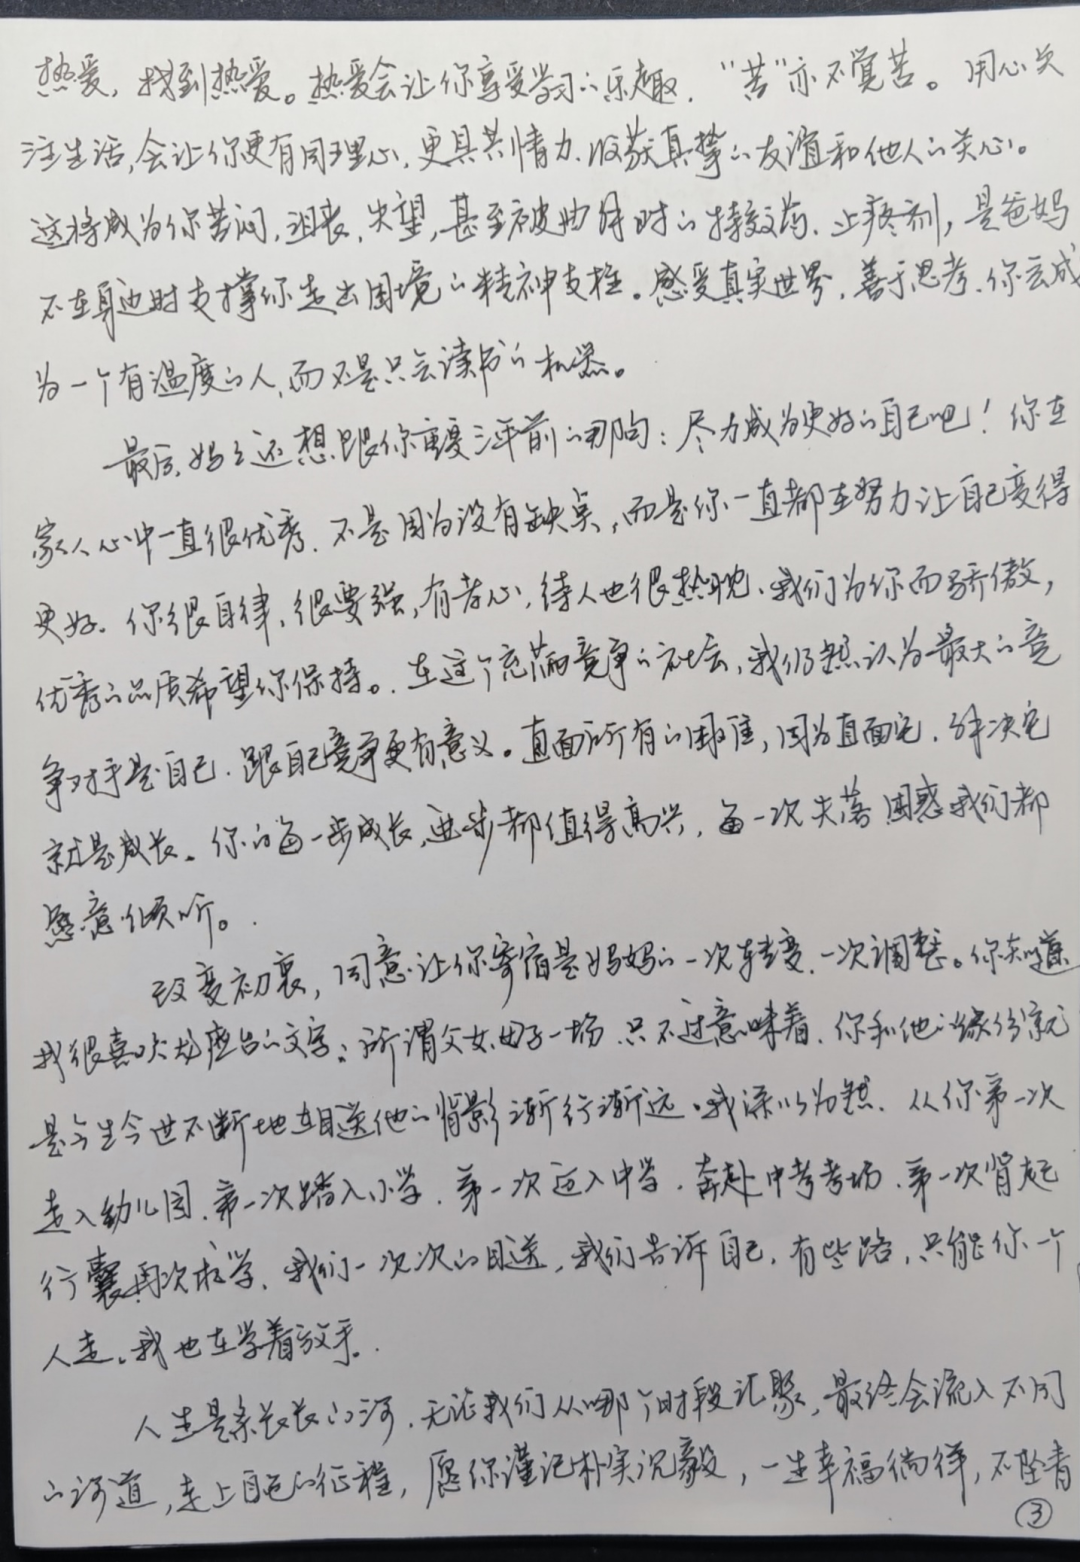 热爱，找到热爱。热爱会让你享受学习的乐趣，“苦”亦不觉苦。用心关
注生活，会让你更有同理心，更具共情力，收获真挚的友谊和他人的关心。
这将成为你苦闷，沮丧，失望，甚至被曲解时的特效药，止疼剂，是爸妈
不在身边时支撑你走出困境的精神支柱。感受真实世界，善于思考，你会成
为一个有温度的人，而不是只会读书的机器。
最后，妈妈还想跟你重复三年前的那句：尽力成为更好的自己吧！你在
家人心中一直很优秀，不是因为没有缺点，而是你一直都在努力让自己变得
更好。你很自律，很要强，有孝心，待人也很热忱，我们为你而骄傲，
优秀的品质希望你保持。在这个充满竞争的社会，我仍然认为最大的竞
争对手是自己，跟自己竞争更有意义。直面所有的困难，因为直面它，解决它
就是成长。你的每一步成长，进步都值得高兴，每一次失落困惑我们都
愿意倾听。
改变初衷，同意让你寄宿是妈妈的一次转变，一次调整。你知道
我很喜欢龙应台的文字：所谓父女母子一场，只不过意味着，你和他的缘分就
是今生今世不断地在目送他的背影渐行渐远。我深以为然，从你第一次
走入幼儿园，第一次踏入小学，第一次迈入中学，奔赴中考考场，第一次背起
行囊再次求学，我们一次次的目送，我们告诉自己，有些路，只能你一个
人走。我也在学着放手。
人生是条长长的河，无论我们从哪个时段汇聚，最终会流入不同
的河道，走上自己的征程，愿你谨记朴实沉毅，一生幸福徜徉，不坠青
③